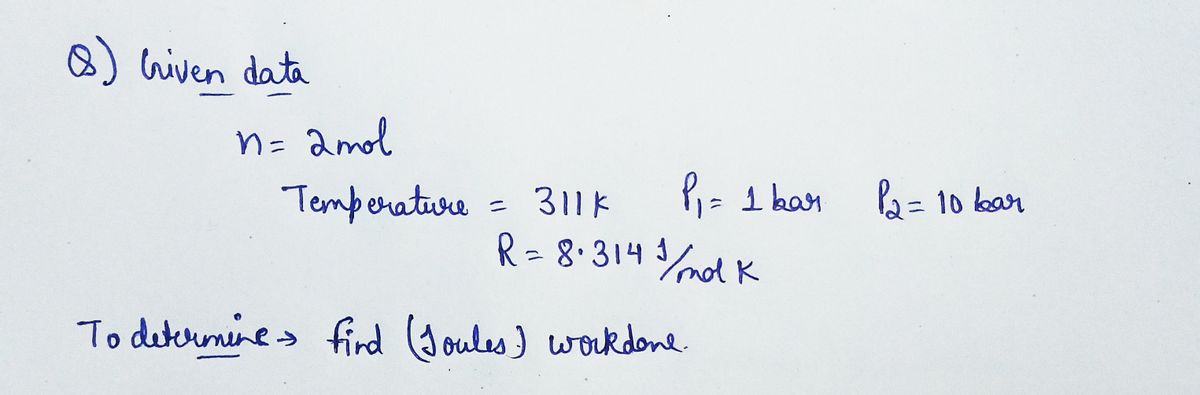 Q) Given data
n = 2mol
Temperature = 311 K P₁ = 1 bar P₂ = 10 bar
R = 8.314 J/mol K
To determine → find (Joules) workdone.